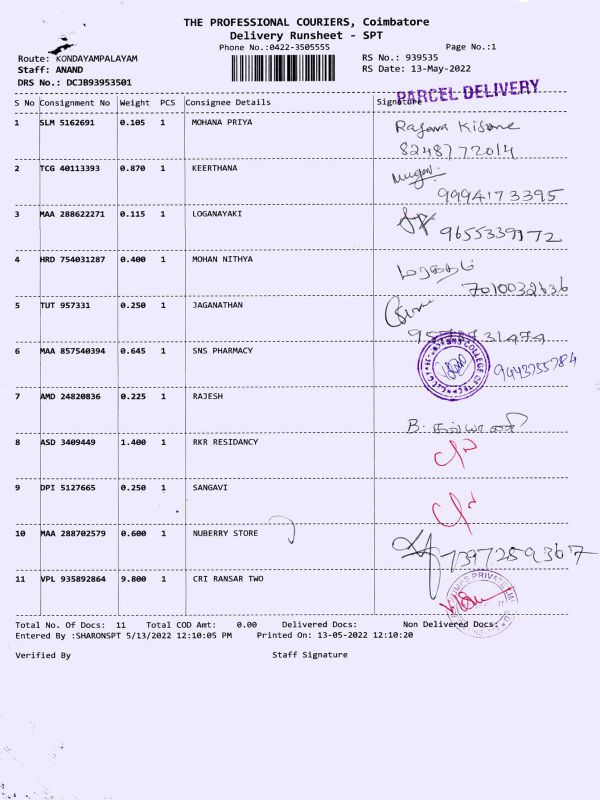 THE PROFESSIONAL COURIERS, Coimbatore
Delivery Runsheet - SPT
Phone No.:0422-3505555
Page No.:1
Route: KONDAYAMPALAYAM
RS No.: 939535
Staff: ANAND
RS Date: 13-May-2022
DRS No.: DCJB93953501
PARCEL DELIVERY
S No Consignment No Weight PCS Consignee Details Signature
1 SLM 5162691 0.105 1 MOHANA PRIYA
8248772014
2 TCG 40113393 0.870 1 KEERTHANA
9994173395
3 MAA 288622271 0.115 1 LOGANAYAKI
9655339172
4 HRD 754031287 0.400 1 MOHAN NITHYA
7010032636
5 TUT 957331 0.250 1 JAGANATHAN
6 MAA 857540394 0.645 1 SNS PHARMACY
SNS COLLEGE OF
9443255784
7 AMD 24820836 0.225 1 RAJESH
8 ASD 3409449 1.400 1 RKR RESIDANCY
9 DPI 5127665 0.250 1 SANGAVI
10 MAA 288702579 0.600 1 NUBERRY STORE
7397259367
11 VPL 935892864 9.800 1 CRI RANSAR TWO
Total No. Of Docs: 11 Total COD Amt: 0.00 Delivered Docs: Non Delivered Docs:
Entered By :SHARONSPT 5/13/2022 12:10:05 PM Printed On: 13-05-2022 12:10:20
Verified By Staff Signature